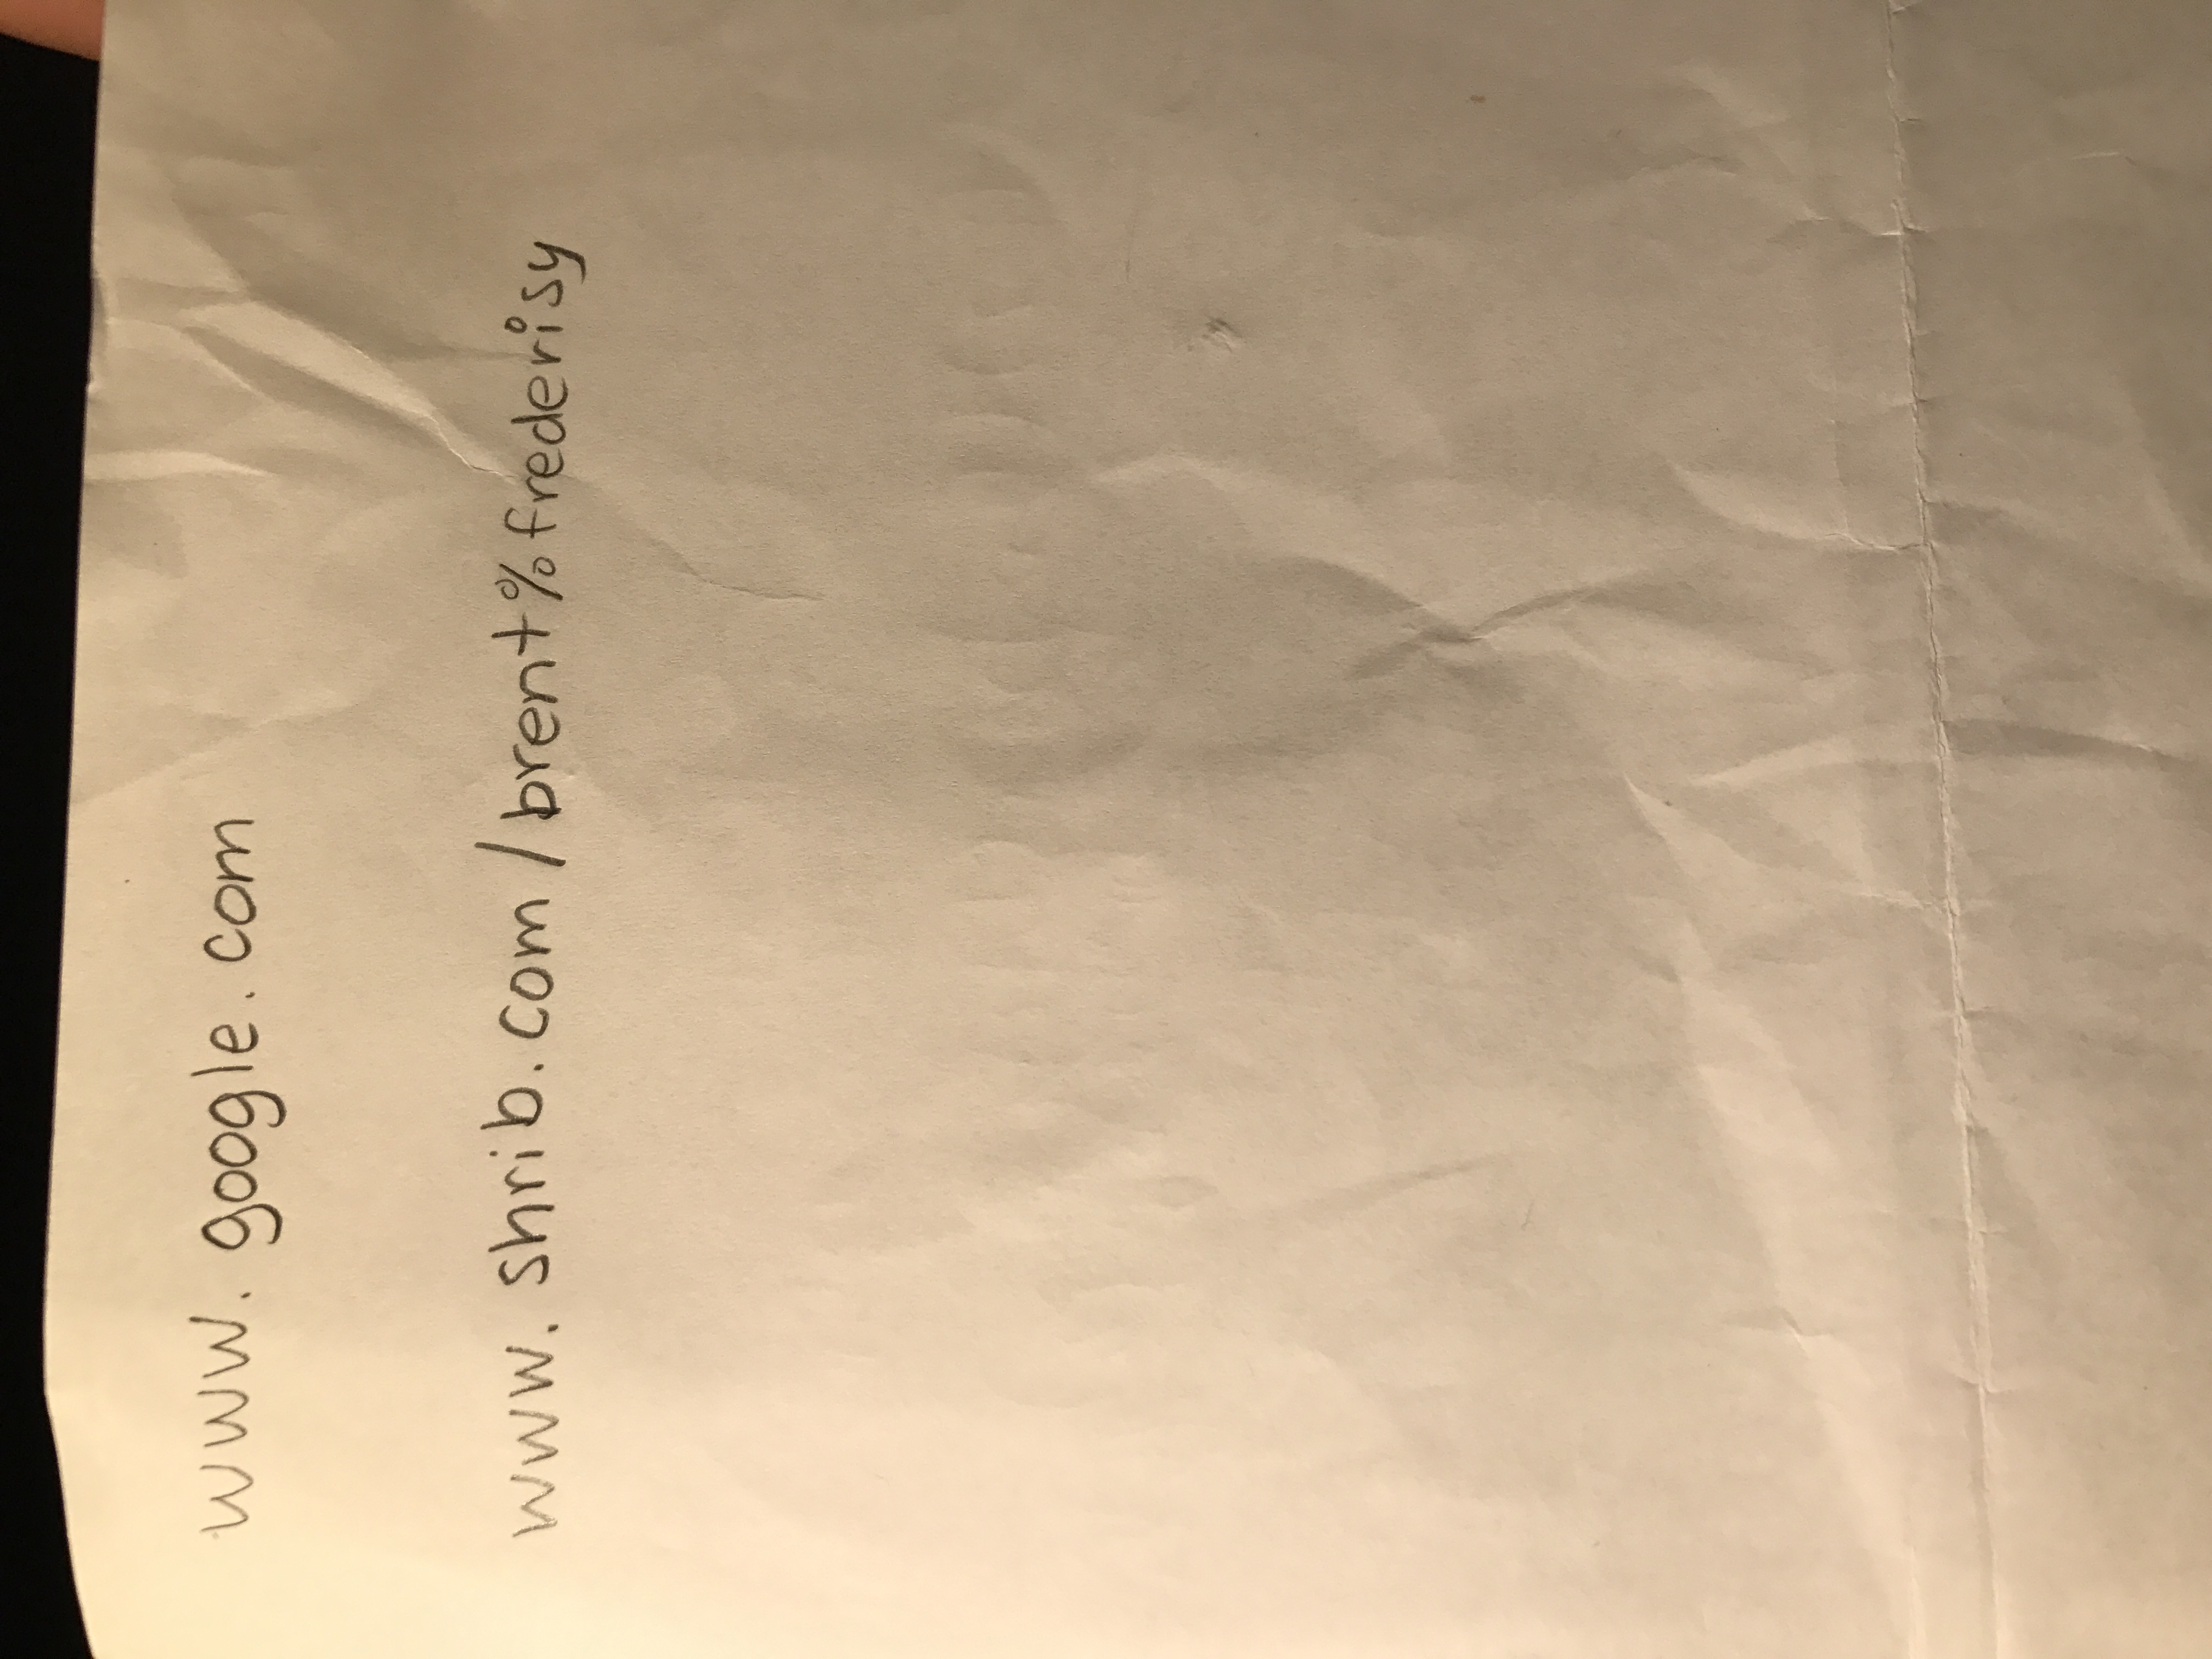 www.google.com
www.shrib.com/brent%frederisy